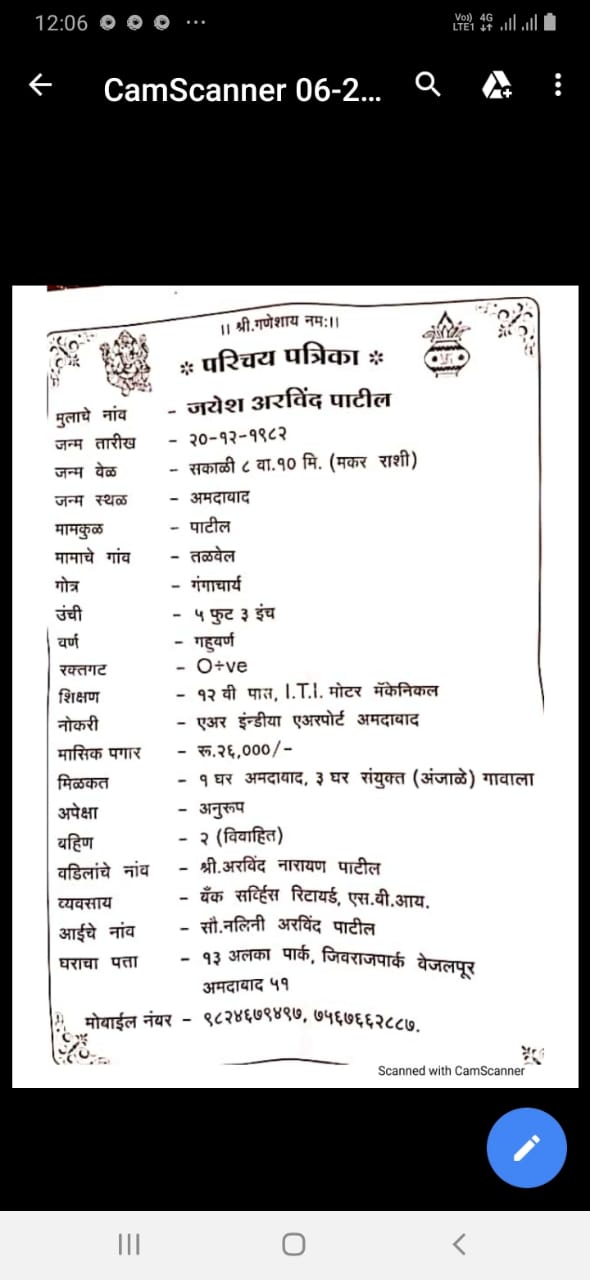 12:06
Vo)) 4G
LTE1
CamScanner 06-2...
।। श्री.गणेशाय नमः।।
* परिचय पत्रिका *
मुलाचे नांव - जयेश अरविंद पाटील
जन्म तारीख - २०-१२-१९८२
जन्म वेळ - सकाळी ८ वा.१० मि. (मकर राशी)
जन्म स्थळ - अमदावाद
मामकुळ - पाटील
मामाचे गांव - तळवेल
गोत्र - गंगाचार्य
उंची - ५ फुट ३ इंच
वर्ण - गहुवर्ण
रक्तगट - O+ve
शिक्षण - १२ वी पास, I.T.I. मोटर मॅकेनिकल
नोकरी - एअर इंन्डीया एअरपोर्ट अमदावाद
मासिक पगार - रू.२६,०००/-
मिळकत - १ घर अमदावाद, ३ घर संयुक्त (अंजाळे) गावाला
अपेक्षा - अनुरूप
बहिण - २ (विवाहित)
वडिलांचे नांव - श्री.अरविंद नारायण पाटील
व्यवसाय - बँक सर्व्हिस रिटायर्ड, एस.बी.आय.
आईचे नांव - सौ.नलिनी अरविंद पाटील
घराचा पत्ता - १३ अलका पार्क, जिवराजपार्क वेजलपूर
अमदावाद ५१
मोबाईल नंबर - ९८२४६७९४९७, ७५६७६६२८८७.
Scanned with CamScanner